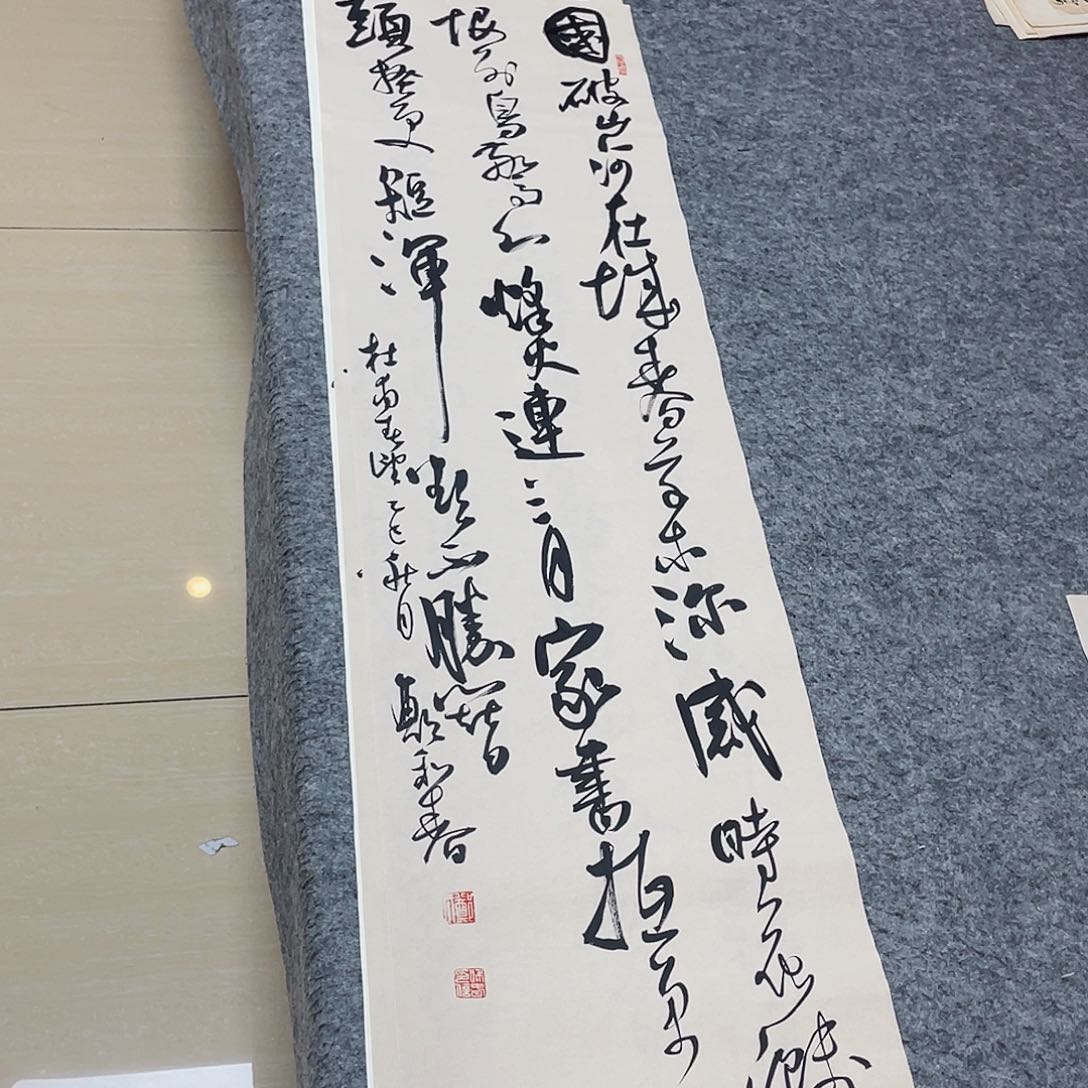 國破山河在城春草木深感時花濺
恨別鳥驚心烽火連三月家書抵萬
頭搔更短渾欲不勝簪
杜甫春望乙巳秋月鄭和春